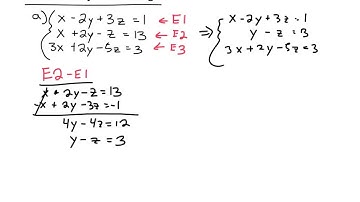 a) { x - 2y + 3z = 1 ← E1
x + 2y - z = 13 ← E2
3x + 2y - 5z = 3 ← E3
⇒ { x - 2y + 3z = 1
y - z = 3
3x + 2y - 5z = 3
E2-E1
x + 2y - z = 13
-x + 2y - 3z = -1
4y - 4z = 12
y - z = 3